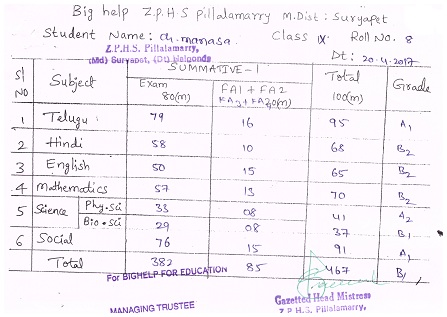 Big help Z.P.H.S pillalamarry M.Dist : Suryapet
Student Name: ch. manasa. Class IX Roll No. 8
Z.P.H.S. Pillalamarry,
(Md) Suryapet, (Dt) Nalgonda Dt: 20.4.2017
Sl NO Subject SUMMATIVE-I Total 100(m) Grade
Exam 80(m) FA1 + FA2
1 Telugu 79 16 95 A1
2 Hindi 58 10 68 B2
3 English 50 15 65 B2
4 mathematics 57 13 70 B2
5 Science Phy.sci 33 08 41 A2
Bio.sci 29 08 37 B1
6 Social 76 15 91 A1
Total 382 85 467 B1
For BIGHELP FOR EDUCATION
MANAGING TRUSTEE
Gazetted Head Mistress
Z.P.H.S. Pillalamarry,